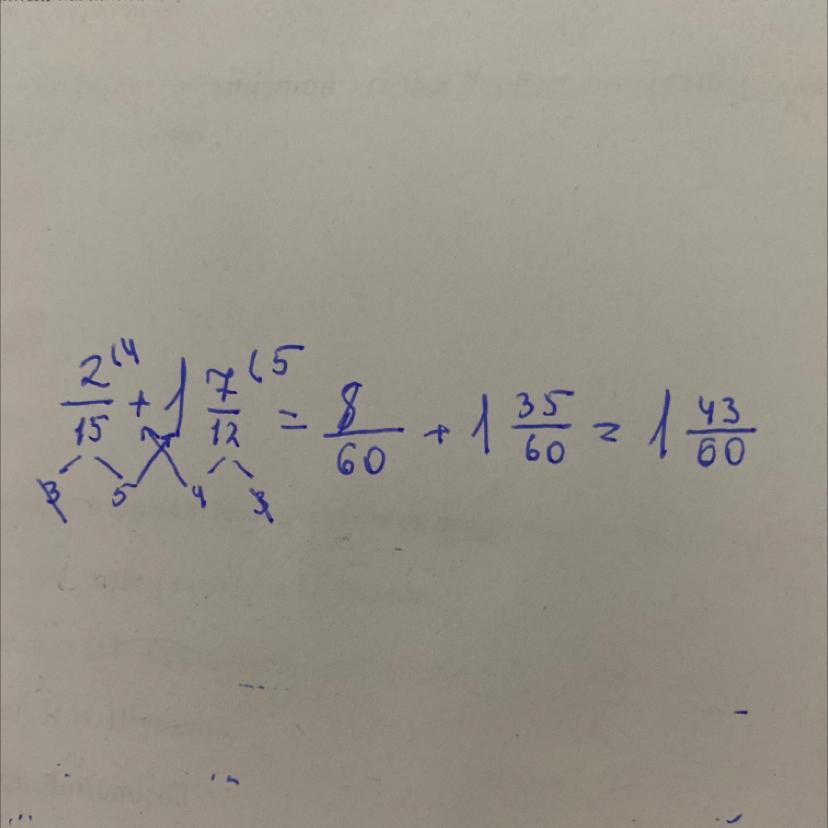 2/15 (4 + 1 7/12 (5 = 8/60 + 1 35/60 = 1 43/60
3 5 4 3